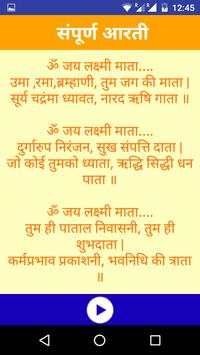 12:45
संपूर्ण आरती
ॐ जय लक्ष्मी माता....
उमा ,रमा,ब्रम्हाणी, तुम जग की माता |
सूर्य चद्रंमा ध्यावत, नारद ऋषि गाता ॥
ॐ जय लक्ष्मी माता....
दुर्गारुप निरंजन, सुख संपत्ति दाता |
जो कोई तुमको ध्याता, ऋद्धि सिद्धी धन
पाता ॥
ॐ जय लक्ष्मी माता....
तुम ही पाताल निवासनी, तुम ही
शुभदाता |
कर्मप्रभाव प्रकाशनी, भवनिधि की त्राता
॥